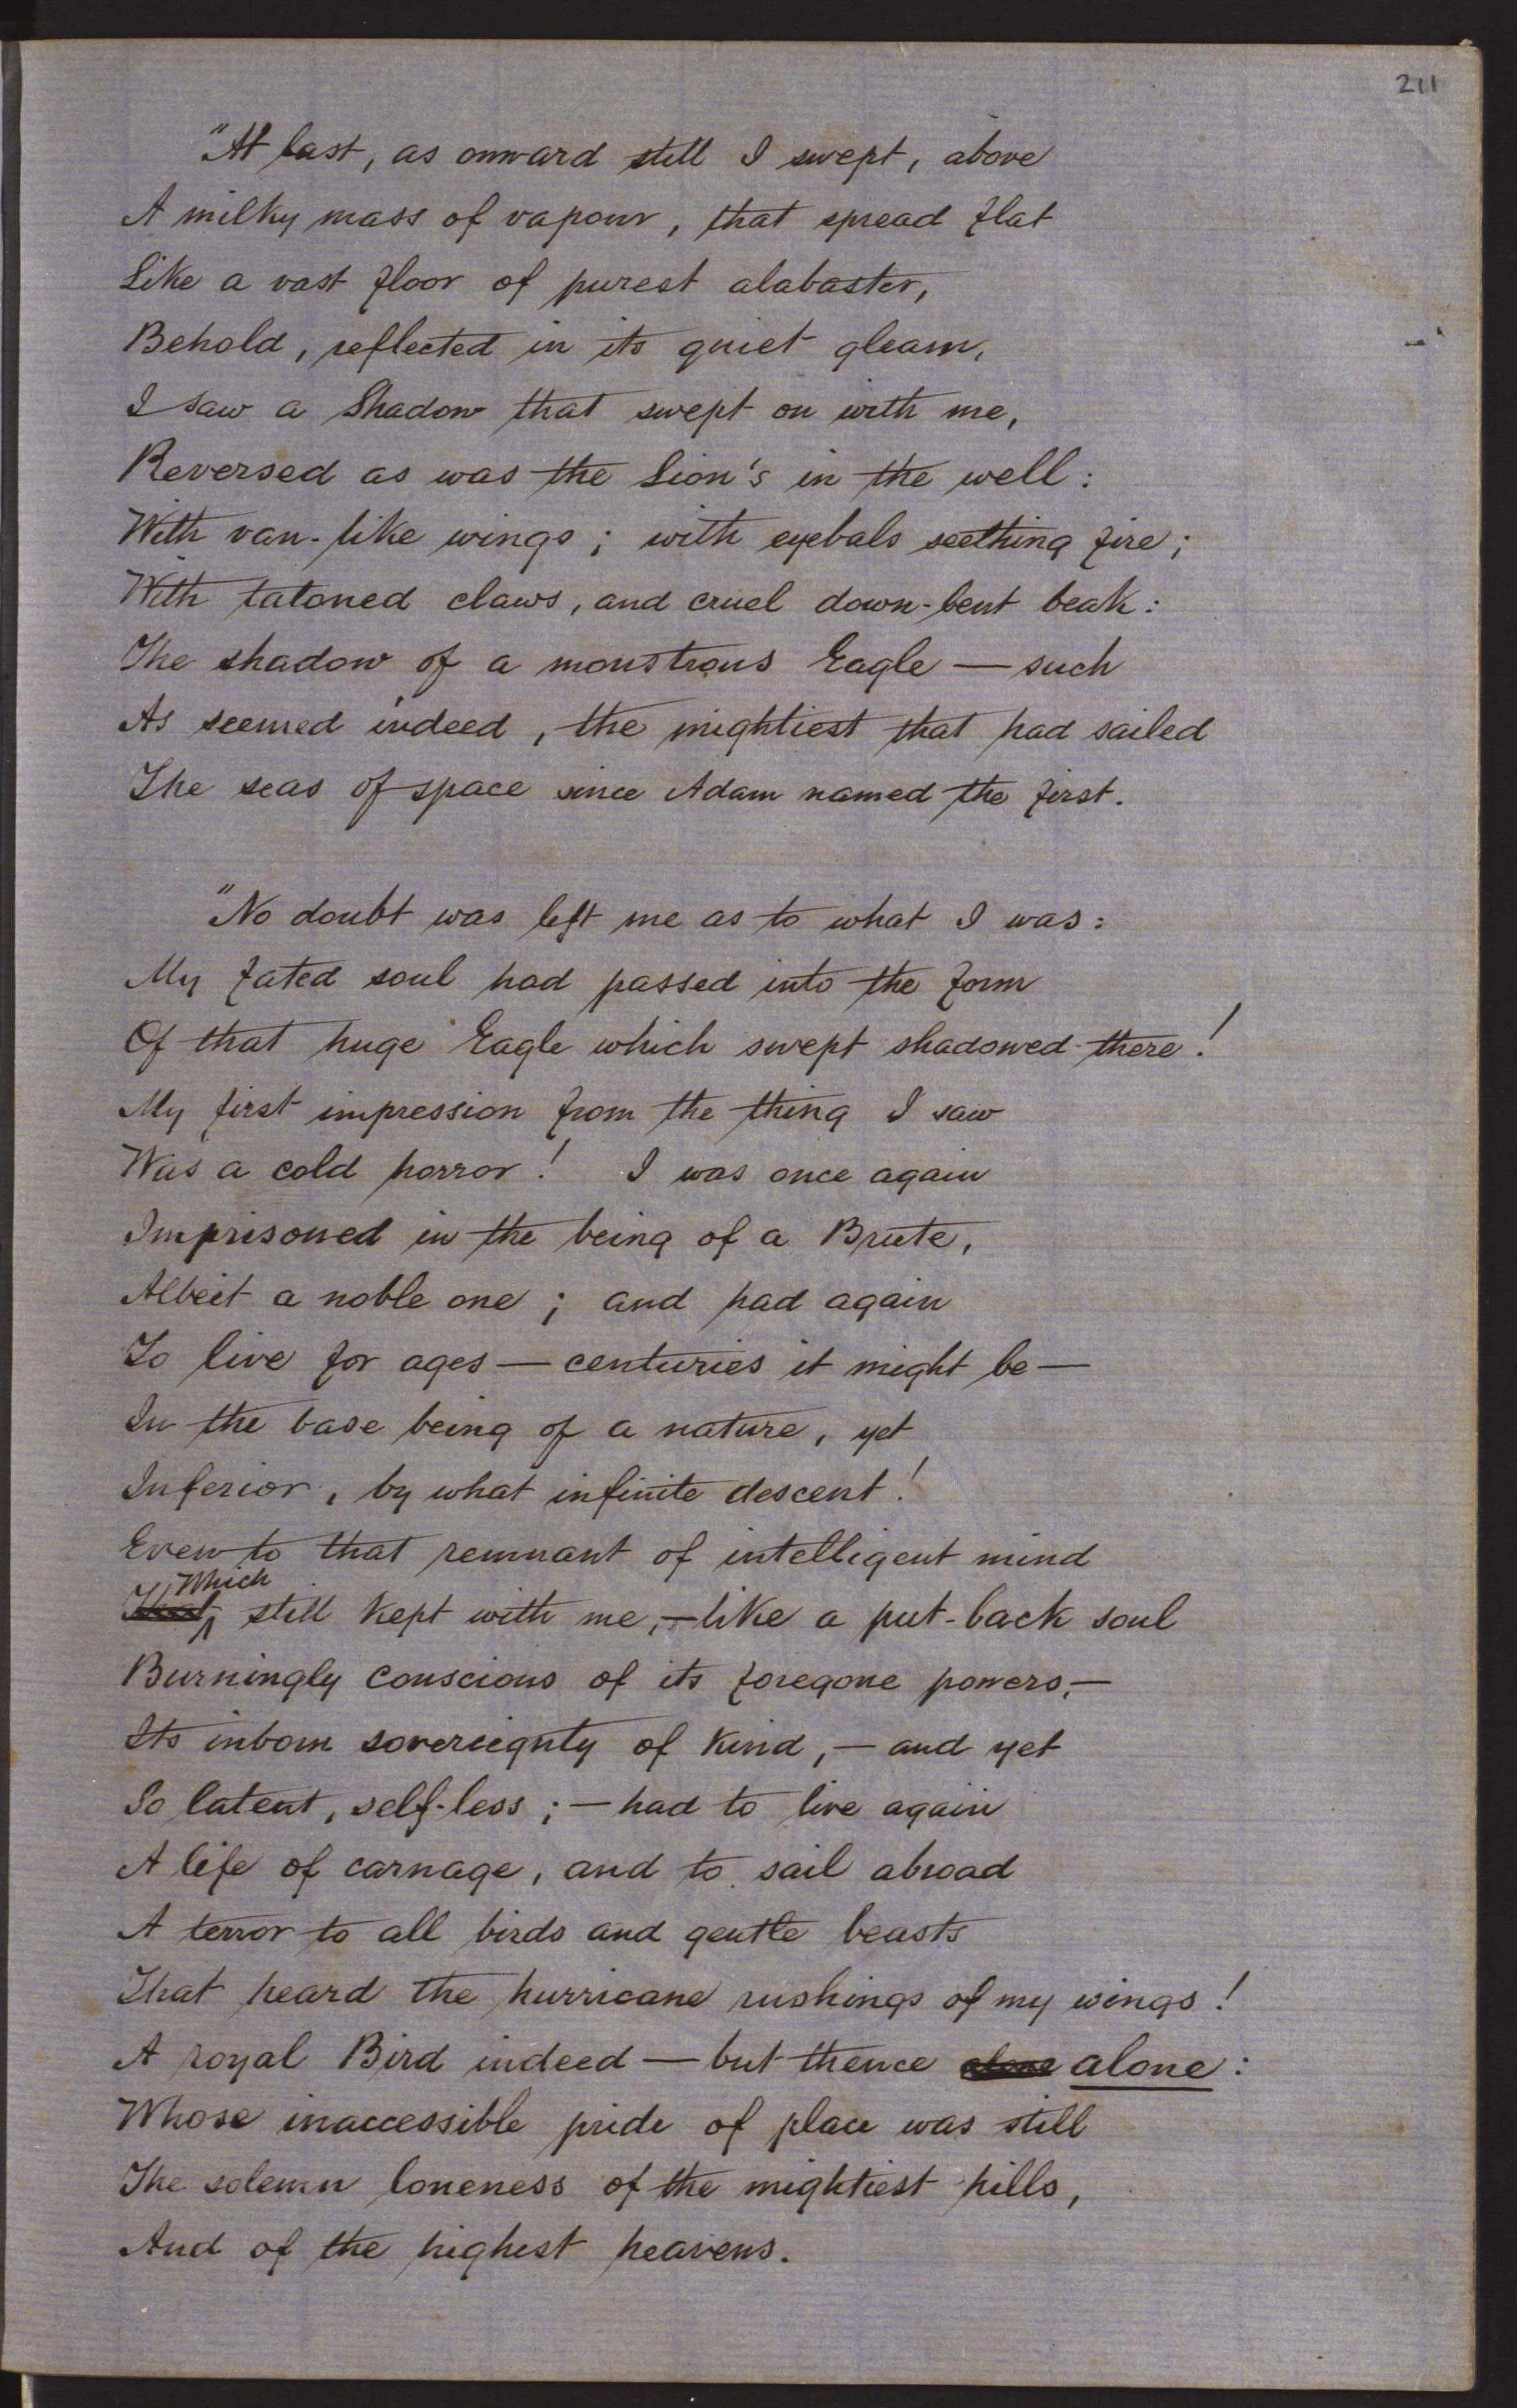 211
"At last, as onward still I swept, above
A milky mass of vapour, that spread flat
Like a vast floor of purest alabaster,
Behold, reflected in its quiet gleam,
I saw a Shadow that swept on with me,
Reversed as was the Lion's in the well:
With van-like wings; with eyebals seething fire;
With taloned claws, and cruel down-bent beak:
The shadow of a monstrous Eagle — such
As seemed indeed, the mightiest that had sailed
The seas of space since Adam named the first.
"No doubt was left me as to what I was:
My fated soul had passed into the form
Of that huge Eagle which swept shadowed there!
My first impression from the thing I saw
Was a cold horror! I was once again
Imprisoned in the being of a Brute,
Albeit a noble one; and had again
To live for ages — centuries it might be —
In the base being of a nature, yet
Inferior, by what infinite descent!
Even to that remnant of intelligent mind
Which
That still kept with me, — like a put-back soul
Burningly conscious of its foregone powers, —
Its inborn sovereignty of kind, — and yet
So latent, self-less; — had to live again
A life of carnage, and to sail abroad
A terror to all birds and gentle beasts
That heard the hurricane rushings of my wings!
A royal Bird indeed — but thence alone alone:
Whose inaccessible pride of place was still
The solemn loneness of the mightiest hills,
And of the highest heavens.